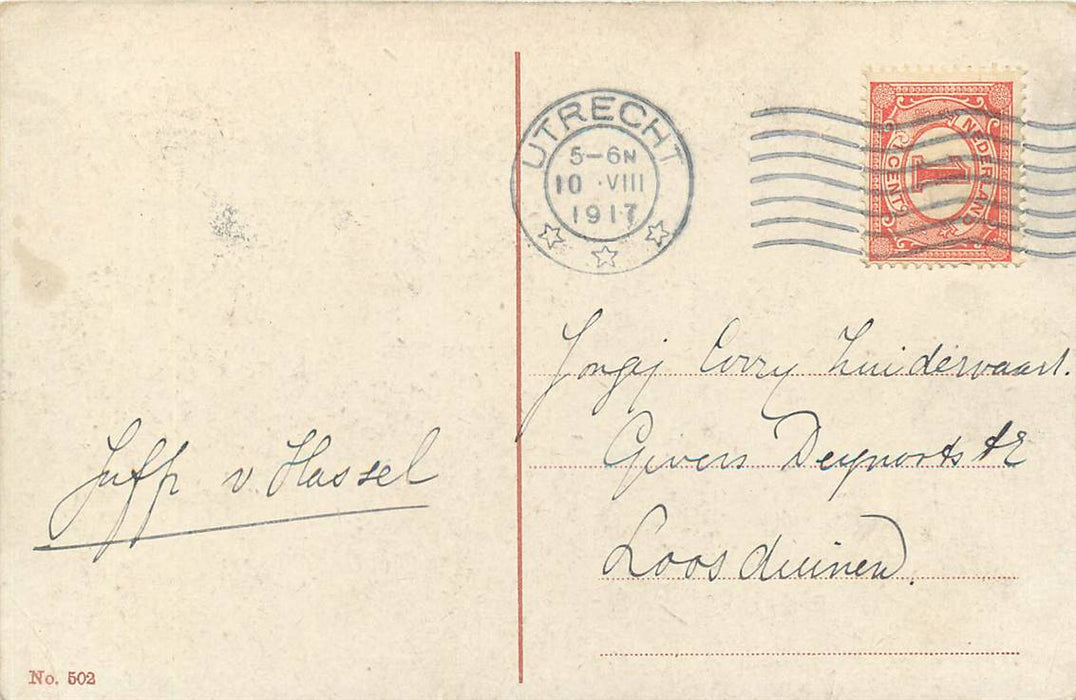 UTRECHT
5-6N
10 ·VIII
1917
NEDERLAND
1
1 CENT
Jongej Corry Zuidervaart.
Gevers Deynootstr
Loosduinen.
Juffr v. Hassel
No. 502